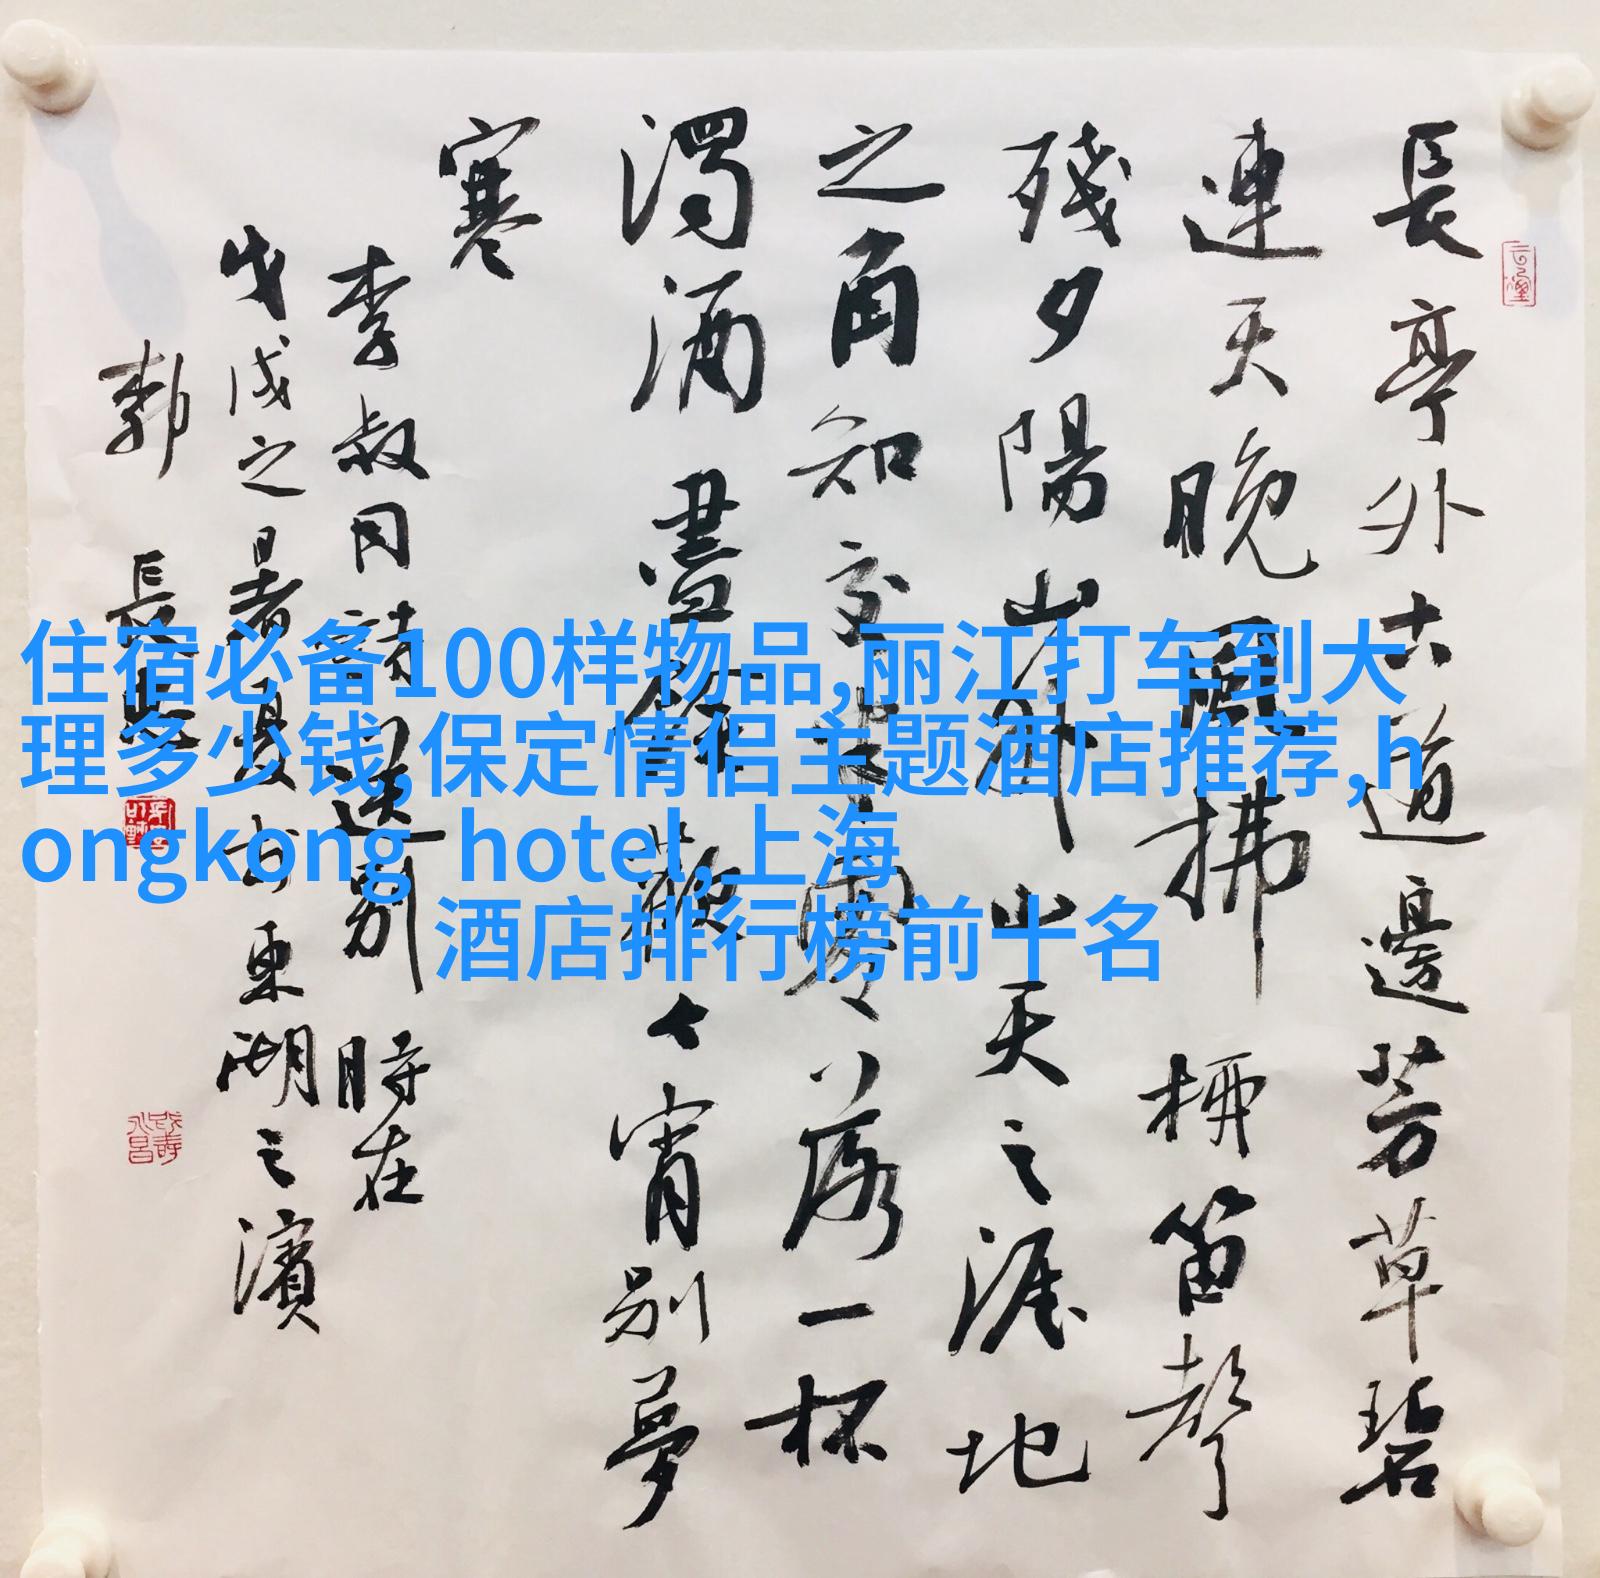 長亭外古道邊芳草碧
連天晚風拂柳笛聲
殘夕陽山外山天之涯地
之角知交半零落一杯
濁酒盡餘歡今宵別夢
寒
李叔同詩送別時在
戊戌之暑夏书東湖之濱
長
住宿必备100样物品,丽江打车到大
理多少钱,保定情侣主题酒店推荐,h
ongkong hotel,上海
酒店排行榜前十名